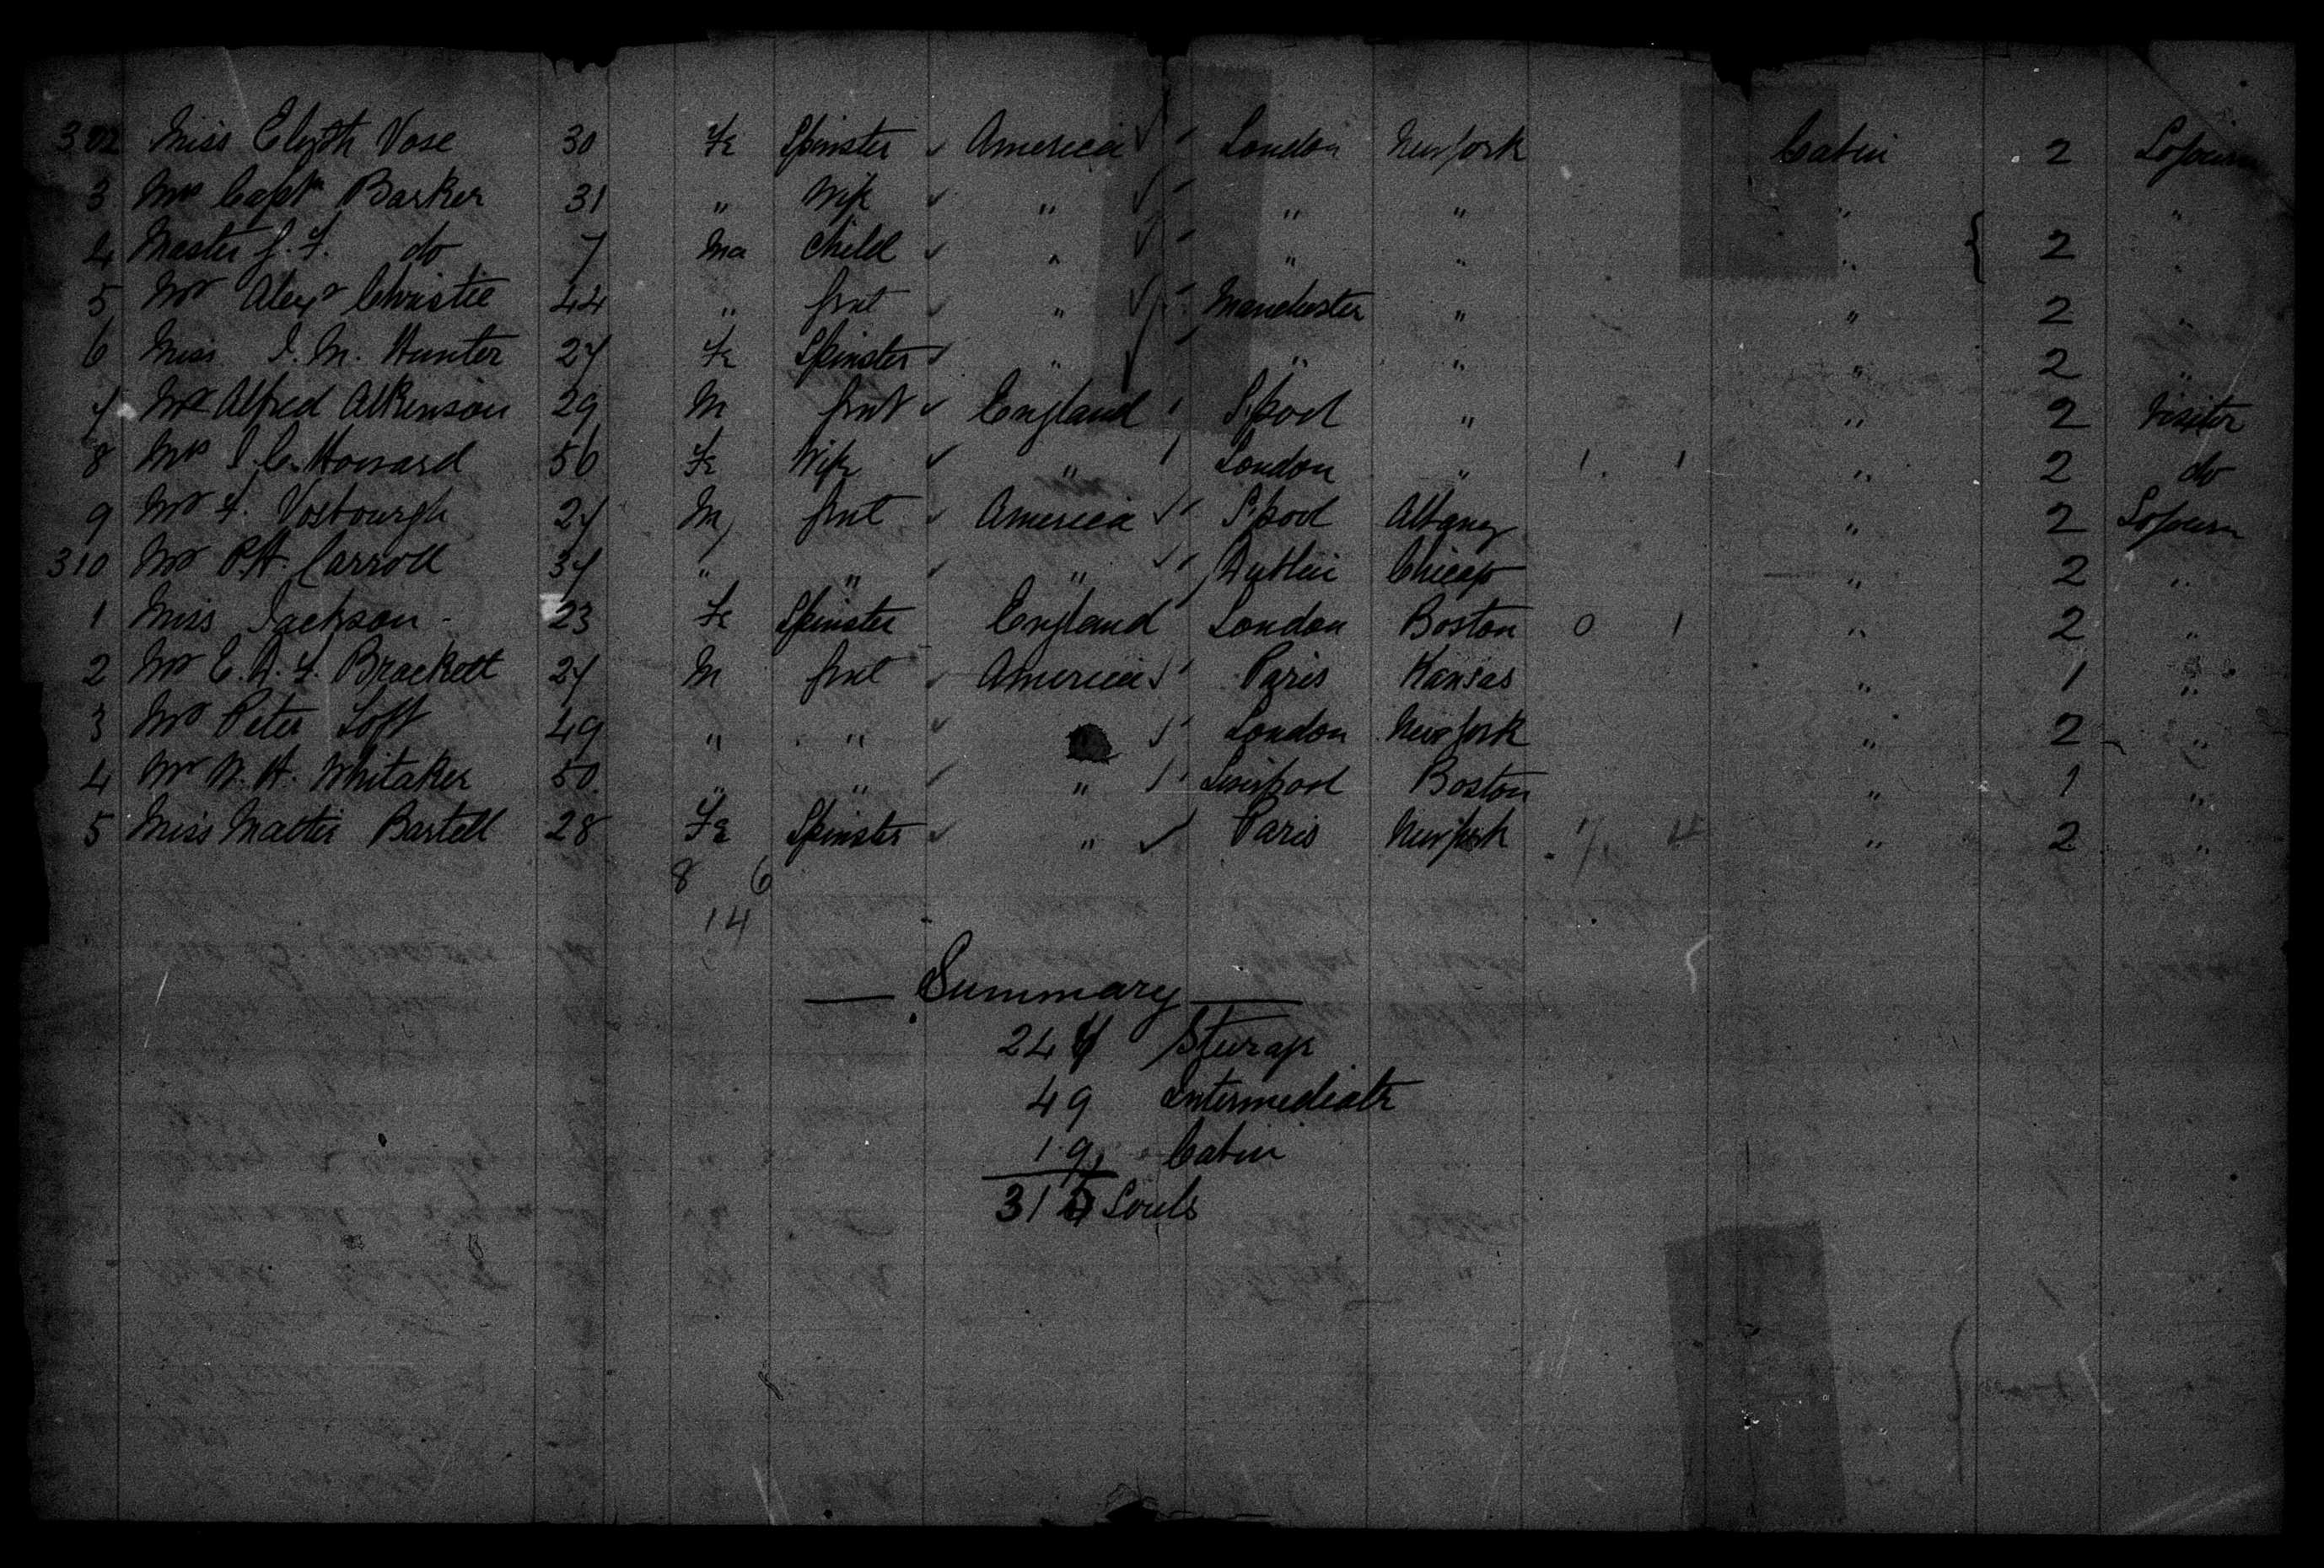 302 Miss Elizth Vose 30 Fe Spinster America London New York Cabin 2 Sojourn
3 Mrs Captn Barker 31 " Wife " " " " "
4 Master J. F. do 7 Ma Child " " " " 2 "
5 Mr Alexr Christie 44 " Gent " Manchester " " 2 "
6 Miss I. M. Hunter 27 Fe Spinster " " " " 2 "
7 Mr Alfred Atkinson 29 M Gent England L'pool " " 2 Visitor
8 Mrs I. C. Howard 56 Fe Wife " London " 1 1 " 2 do
9 Mr F. Vosbourgh 27 M Gent America L'pool Albany " 2 Sojourn
310 Mr P.H. Carroll 37 " " " Dublin Chicago " 2 "
1 Miss Jackson 23 Fe Spinster England London Boston 0 1 " 2 "
2 Mr E. A. F. Brackett 27 M Gent America Paris Kansas " 1 "
3 Mr Peter Loft 49 " " London New York " 2 "
4 Mr W. H. Whitaker 50 " " " Liverpool Boston " 1 "
5 Miss Mattie Bartell 28 Fe Spinster " Paris New York " 2 "
8 6
14
Summary
247 Steerage
49 Intermediate
19 Cabin
315 Souls